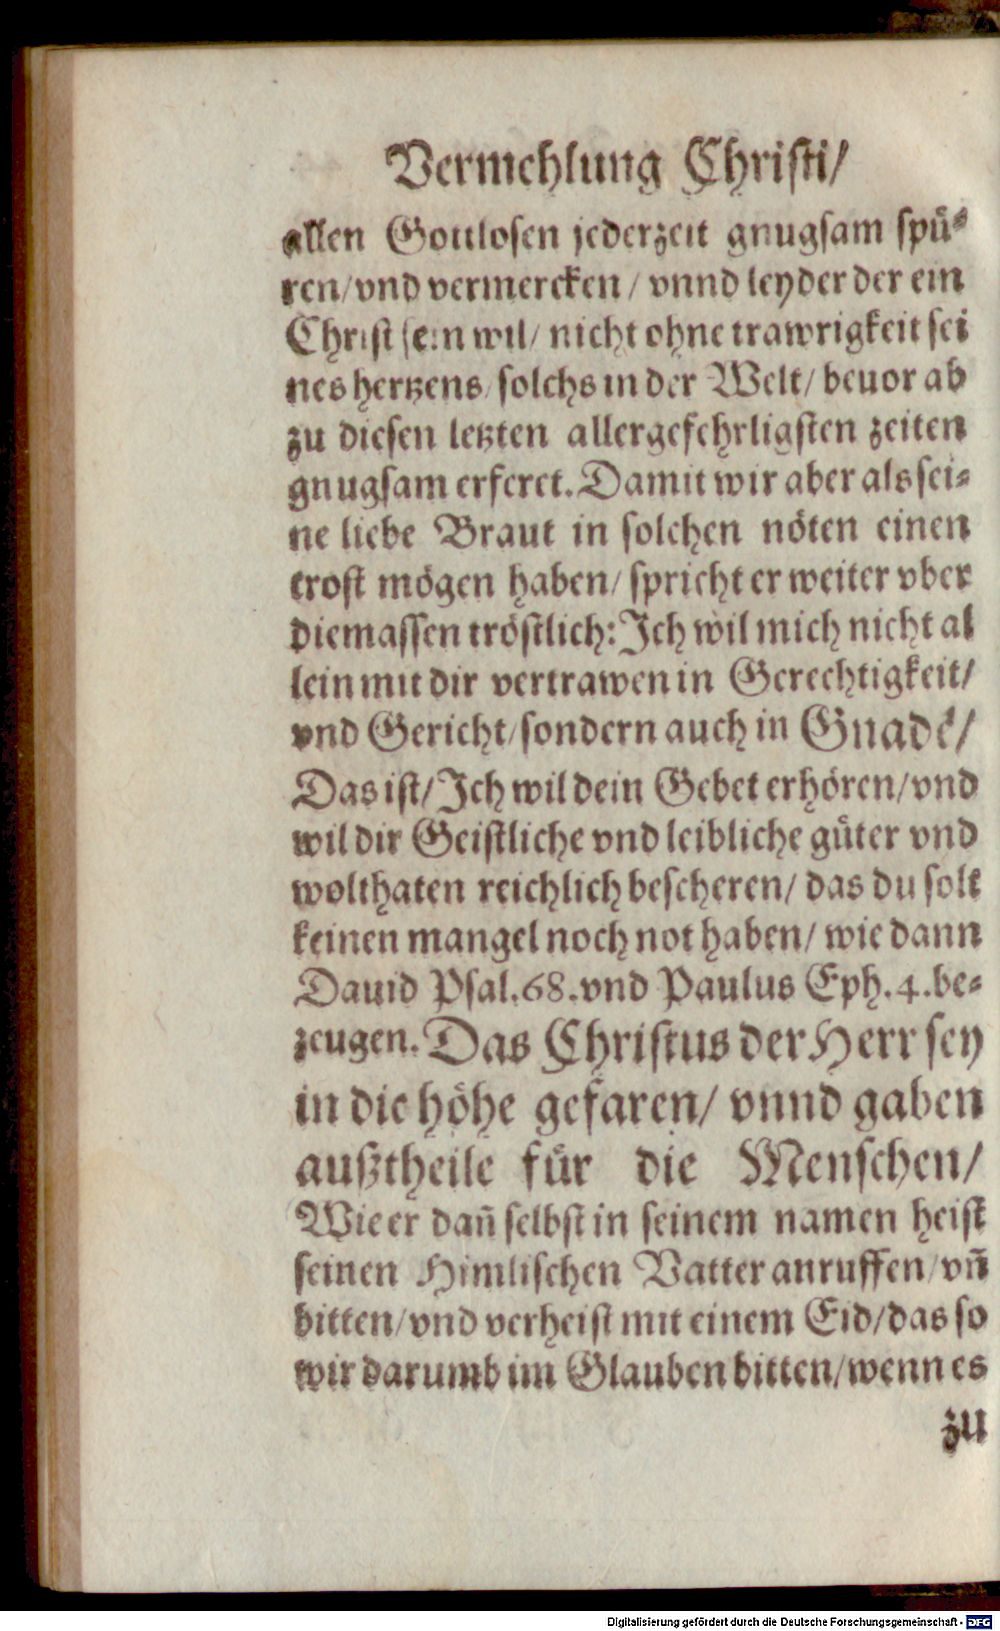 Vermehlung Christi/
allen Gottlosen jederzeit gnugsam spü⸗
ren/vnd vermercken/ vnnd leyder der ein
Christ sein wil/ nicht ohne trawrigkeit sei
nes hertzens/ solchs in der Welt/ beuor ab
zu diesen letzten allergefehrligsten zeiten
gnugsam erferet. Damit wir aber als sei⸗
ne liebe Braut in solchen nöten einen
trost mögen haben/ spricht er weiter vber
die massen tröstlich: Ich wil mich nicht al
lein mit dir vertrawen in Gerechtigkeit/
vnd Gericht/ sondern auch in Gnadē/
Das ist/ Ich wil dein Gebet erhören/ vnd
wil dir Geistliche vnd leibliche güter vnd
wolthaten reichlich bescheren/ das du solt
keinen mangel noch not haben/ wie dann
Dauid Psal. 68. vnd Paulus Eph. 4. be⸗
zeugen. Das Christus der Herr sey
in die höhe gefaren/ vnnd gaben
außtheile für die Menschen/
Wie er dañ selbst in seinem namen heist
seinen Himlischen Vatter anruffen/ vñ
bitten/ vnd verheist mit einem Eid/ das so
wir darumb im Glauben bitten/ wenn es
zu
Digitalisierung gefördert durch die Deutsche Forschungsgemeinschaft - DFG